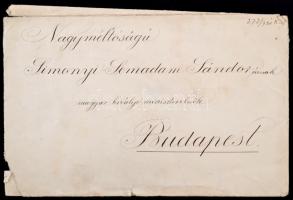 Nagyméltóságú
Simonyi Semadam Sándor úrnak
magyar királyi miniszterelnök
Budapest.